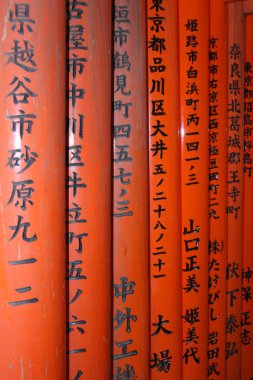 県越谷市砂原九一二
古屋市中川区牛立町五ノ六一ノ
垣市鶴見町四五七ノ三
中外工機
東京都品川区大井五ノ二十八ノ二十一
大場
姫路市白浜町丙一四一ノ三
山口正美 姫美代
京都市右京区西京極豆田町二九
味たけびし 岩田武
奈良県北葛城郡王寺町
伏下泰弘
東京都昭島市拝島町
神保正志